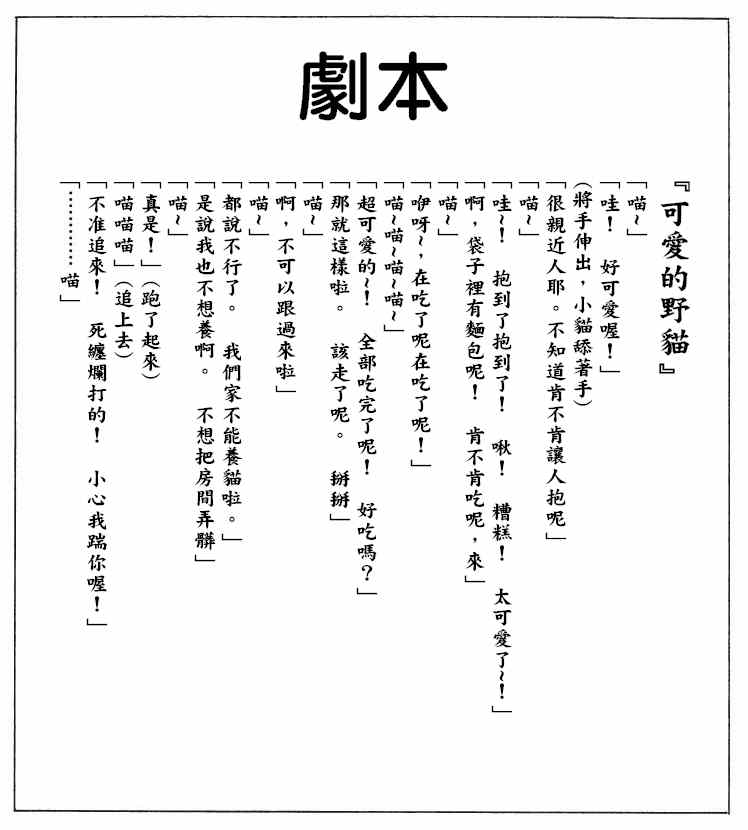 劇本
『可愛的野貓』
「喵~」
「哇！　好可愛喔！」
（將手伸出，小貓舔著手）
「很親近人耶。不知道肯不肯讓人抱呢」
「喵~」
「哇~！　抱到了抱到了！　啾！　糟糕！　太可愛了~！」
「啊，袋子裡有麵包呢！　肯不肯吃呢，來」
「喵~」
「咿呀~，在吃了呢在吃了呢！」
「喵~喵~喵~喵~」
「超可愛的~！　全部吃完了呢！　好吃嗎？」
「那就這樣啦。　該走了呢。　掰掰」
「喵~」
「啊，不可以跟過來啦」
「喵~」
「都說不行了。　我們家不能養貓啦。」
「是說我也不想養啊。　不想把房間弄髒」
「喵~」
「真是！」（跑了起來）
「喵喵喵」（追上去）
「不准追來！　死纏爛打的！　小心我踹你喔！」
「…………喵」